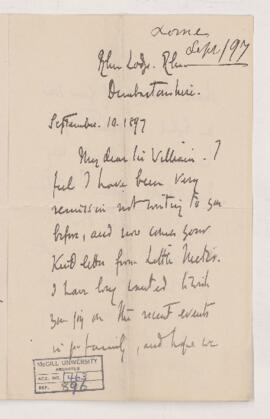 Lorne
Sept/97
Rhu Lodge. Rhu
Dumbartonshire.
September. 10. 1897
My dear Sir William. I
feel I have been very
remiss in not writing to you
before, and now comes your
kind letter from Little Metis.
I have long wanted to wish
you joy on the recent events
in yr family, and hope we
McGILL UNIVERSITY
ARCHIVES
ACC. NO. 463
REF. 896